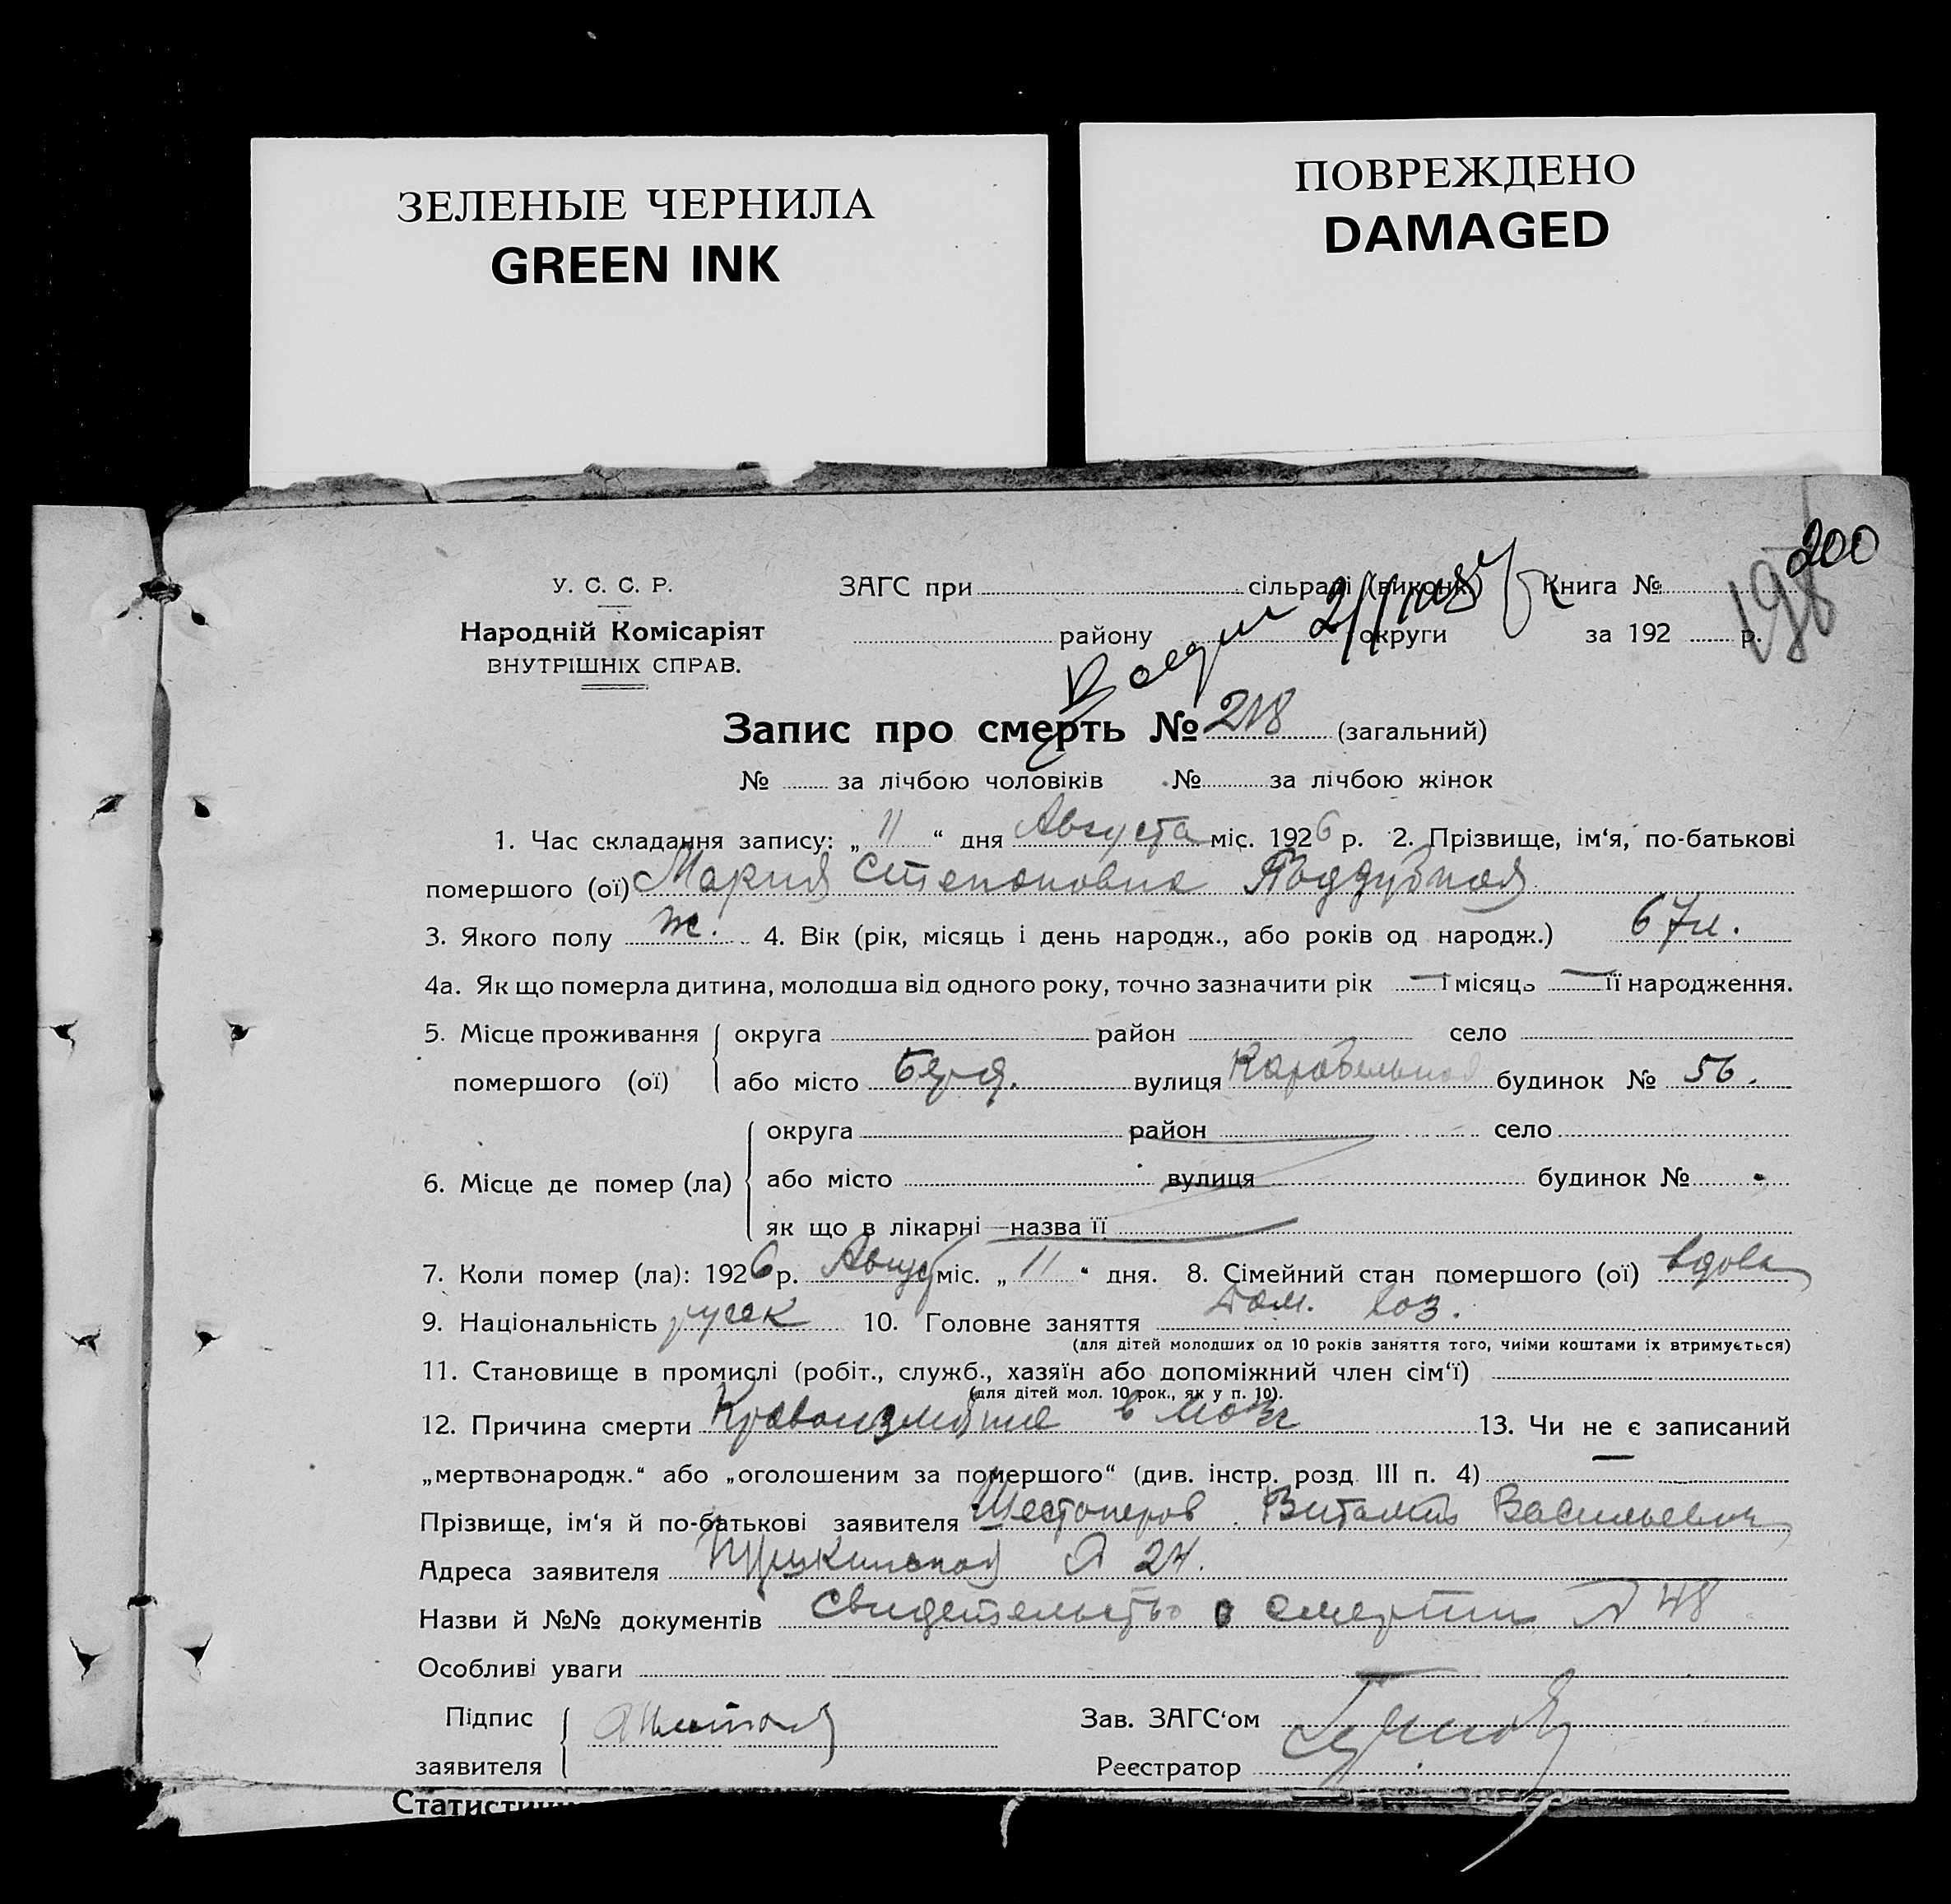 ЗЕЛЕНЫЕ ЧЕРНИЛА
GREEN INK
ПОВРЕЖДЕНО
DAMAGED
200
198
У. С. С. Р.
Народній Комісаріят
ВНУТРІШНІХ СПРАВ.
ЗАГС при сільраді (виконк.) Книга №
району округи за 192 р.
Запис про смерть № 218 (загальний)
№ за лічбою чоловіків № за лічбою жінок
1. Час складання запису: „11“ дня Августа міс. 1926 р. 2. Прізвище, ім‘я, по-батькові
помершого (ої) Мария Степановна Поддубная
3. Якого полу ж. 4. Вік (рік, місяць і день народж., або років од народж.) 67 л.
4а. Як що померла дитина, молодша від одного року, точно зазначити рік — і місяць — її народження.
5. Місце проживання округа район село
помершого (ої) або місто вулиця Корабельная будинок № 56.
округа район село
6. Місце де помер (ла) або місто вулиця будинок №
як що в лікарні—назва її
7. Коли помер (ла): 1926 р. Август міс. „11“ дня. 8. Сімейний стан помершого (ої) вдова
9. Національність русск 10. Головне заняття Дом. хоз.
(для дітей молодших од 10 років заняття того, чиїми коштами їх втримується)
11. Становище в промислі (робіт., служб., хазяїн або допоміжний член сім‘ї)
(для дітей мол. 10 рок., як у п. 10).
12. Причина смерти Кровоизлияние в мозг 13. Чи не є записаний
„мертвонародж.“ або „оголошеним за помершого“ (див. інстр. розд. III п. 4) —
Прізвище, ім‘я й по-батькові заявителя Шестоперов Виталий Васильевич
Адреса заявителя Пушкинская № 24.
Назви й №№ документів Свидетельство о смерти № 48
Особливі уваги
Підпис
заявителя
Зав. ЗАГС‘ом
Реєстратор